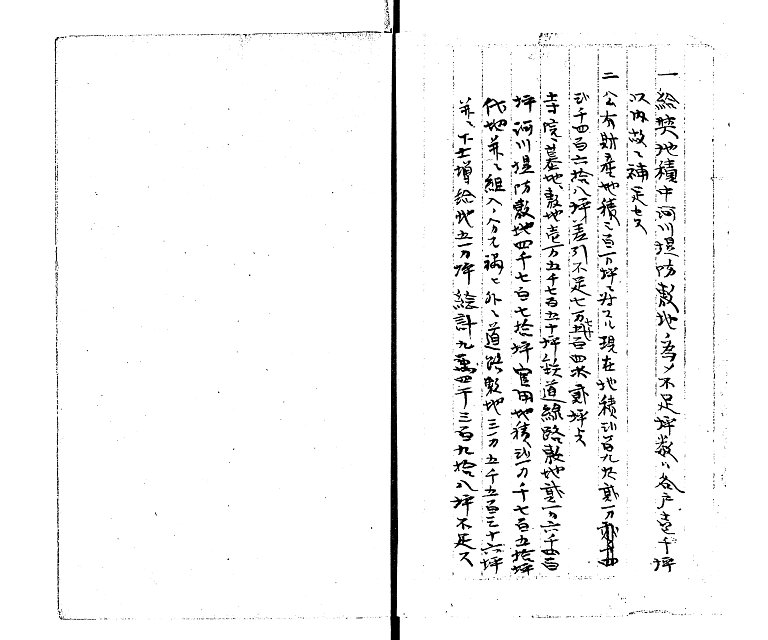 一 給與地積中河川堤防敷地ノ為メ不足坪数ハ各戸壱千坪
以内故ニ補足セス
二 公有財産地積三百万坪ニ対スル現在地積弐百九拾弐万
弐千四百六拾八坪差引不足七万七千五百四拾弐坪ト
寺院、墓地、敷地壱万五千七百五十坪鉄道線路敷地弐万六千四百
坪河川堤防敷地四千七百七拾坪官用地積弐万千七百五拾坪
代地並ニ組入、分ヲ 外ニ道路敷地三万五千五百三十六坪
並ニ下士増給地五万坪総計九萬四千三百九拾八坪不足ス